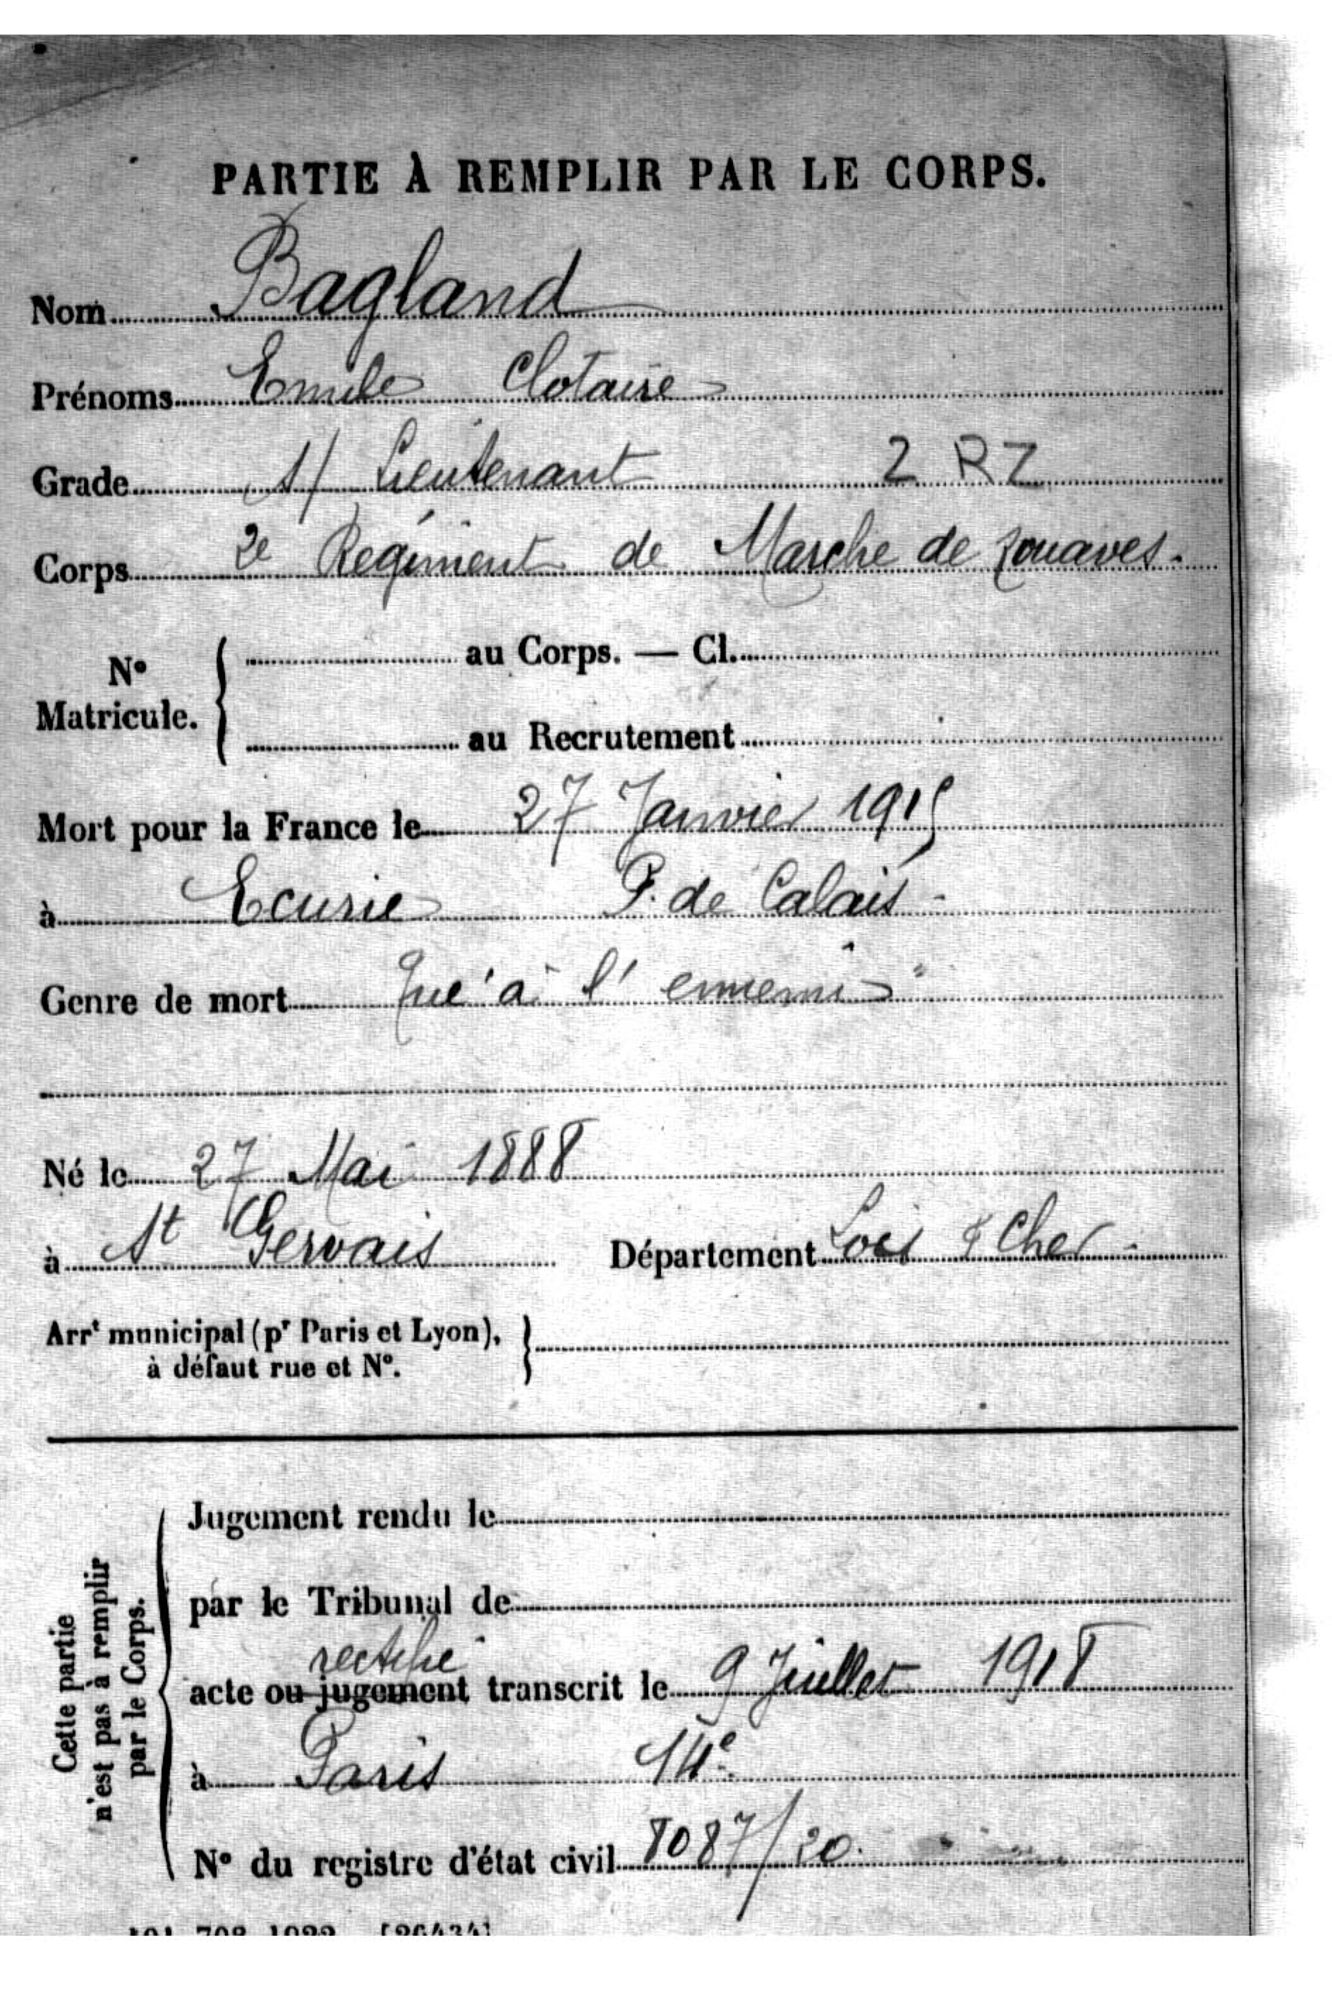 PARTIE À REMPLIR PAR LE CORPS.
Nom Bagland
Prénoms Emile Clotaire
Grade S/ Lieutenant 2 RZ
Corps 2e Régiment de Marche de Zouaves.
N° Matricule. { au Corps. — Cl.
au Recrutement
Mort pour la France le 27 Janvier 1915
à Ecurie P. de Calais -
Genre de mort Tué à l'ennemi
Né le 27 Mai 1888
à St Gervais Département Loir & Cher -
Arrt municipal (pr Paris et Lyon), }
à défaut rue et N°.
Cette partie
n'est pas à remplir
par le Corps.
Jugement rendu le
par le Tribunal de
rectifié
acte ou jugement transcrit le 9 Juillet 1918
à Paris 14e
N° du registre d'état civil 8087/20.